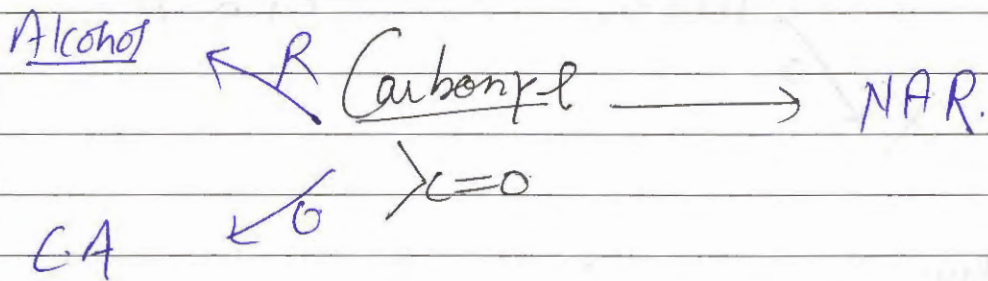 Alcohol R Carbonyl NAR.
>C=O
O
C.A